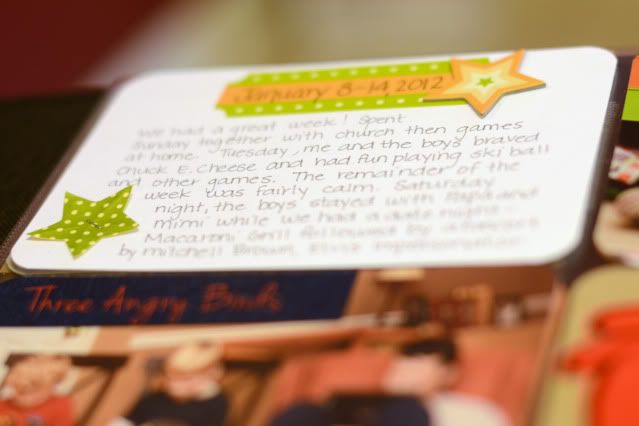 January 8-14 2012
We had a great week! Spent
Sunday together with church then games
at home. Tuesday, me and the boys braved
Chuck E. Cheese and had fun playing ski ball
and other games. The remainder of the
week was fairly calm. Saturday
night, the boys stayed with Papa and
mimi while we had a date night -
Macaroni Grill followed by a
by mitchell Brown, Elvis
Three Angry Birds